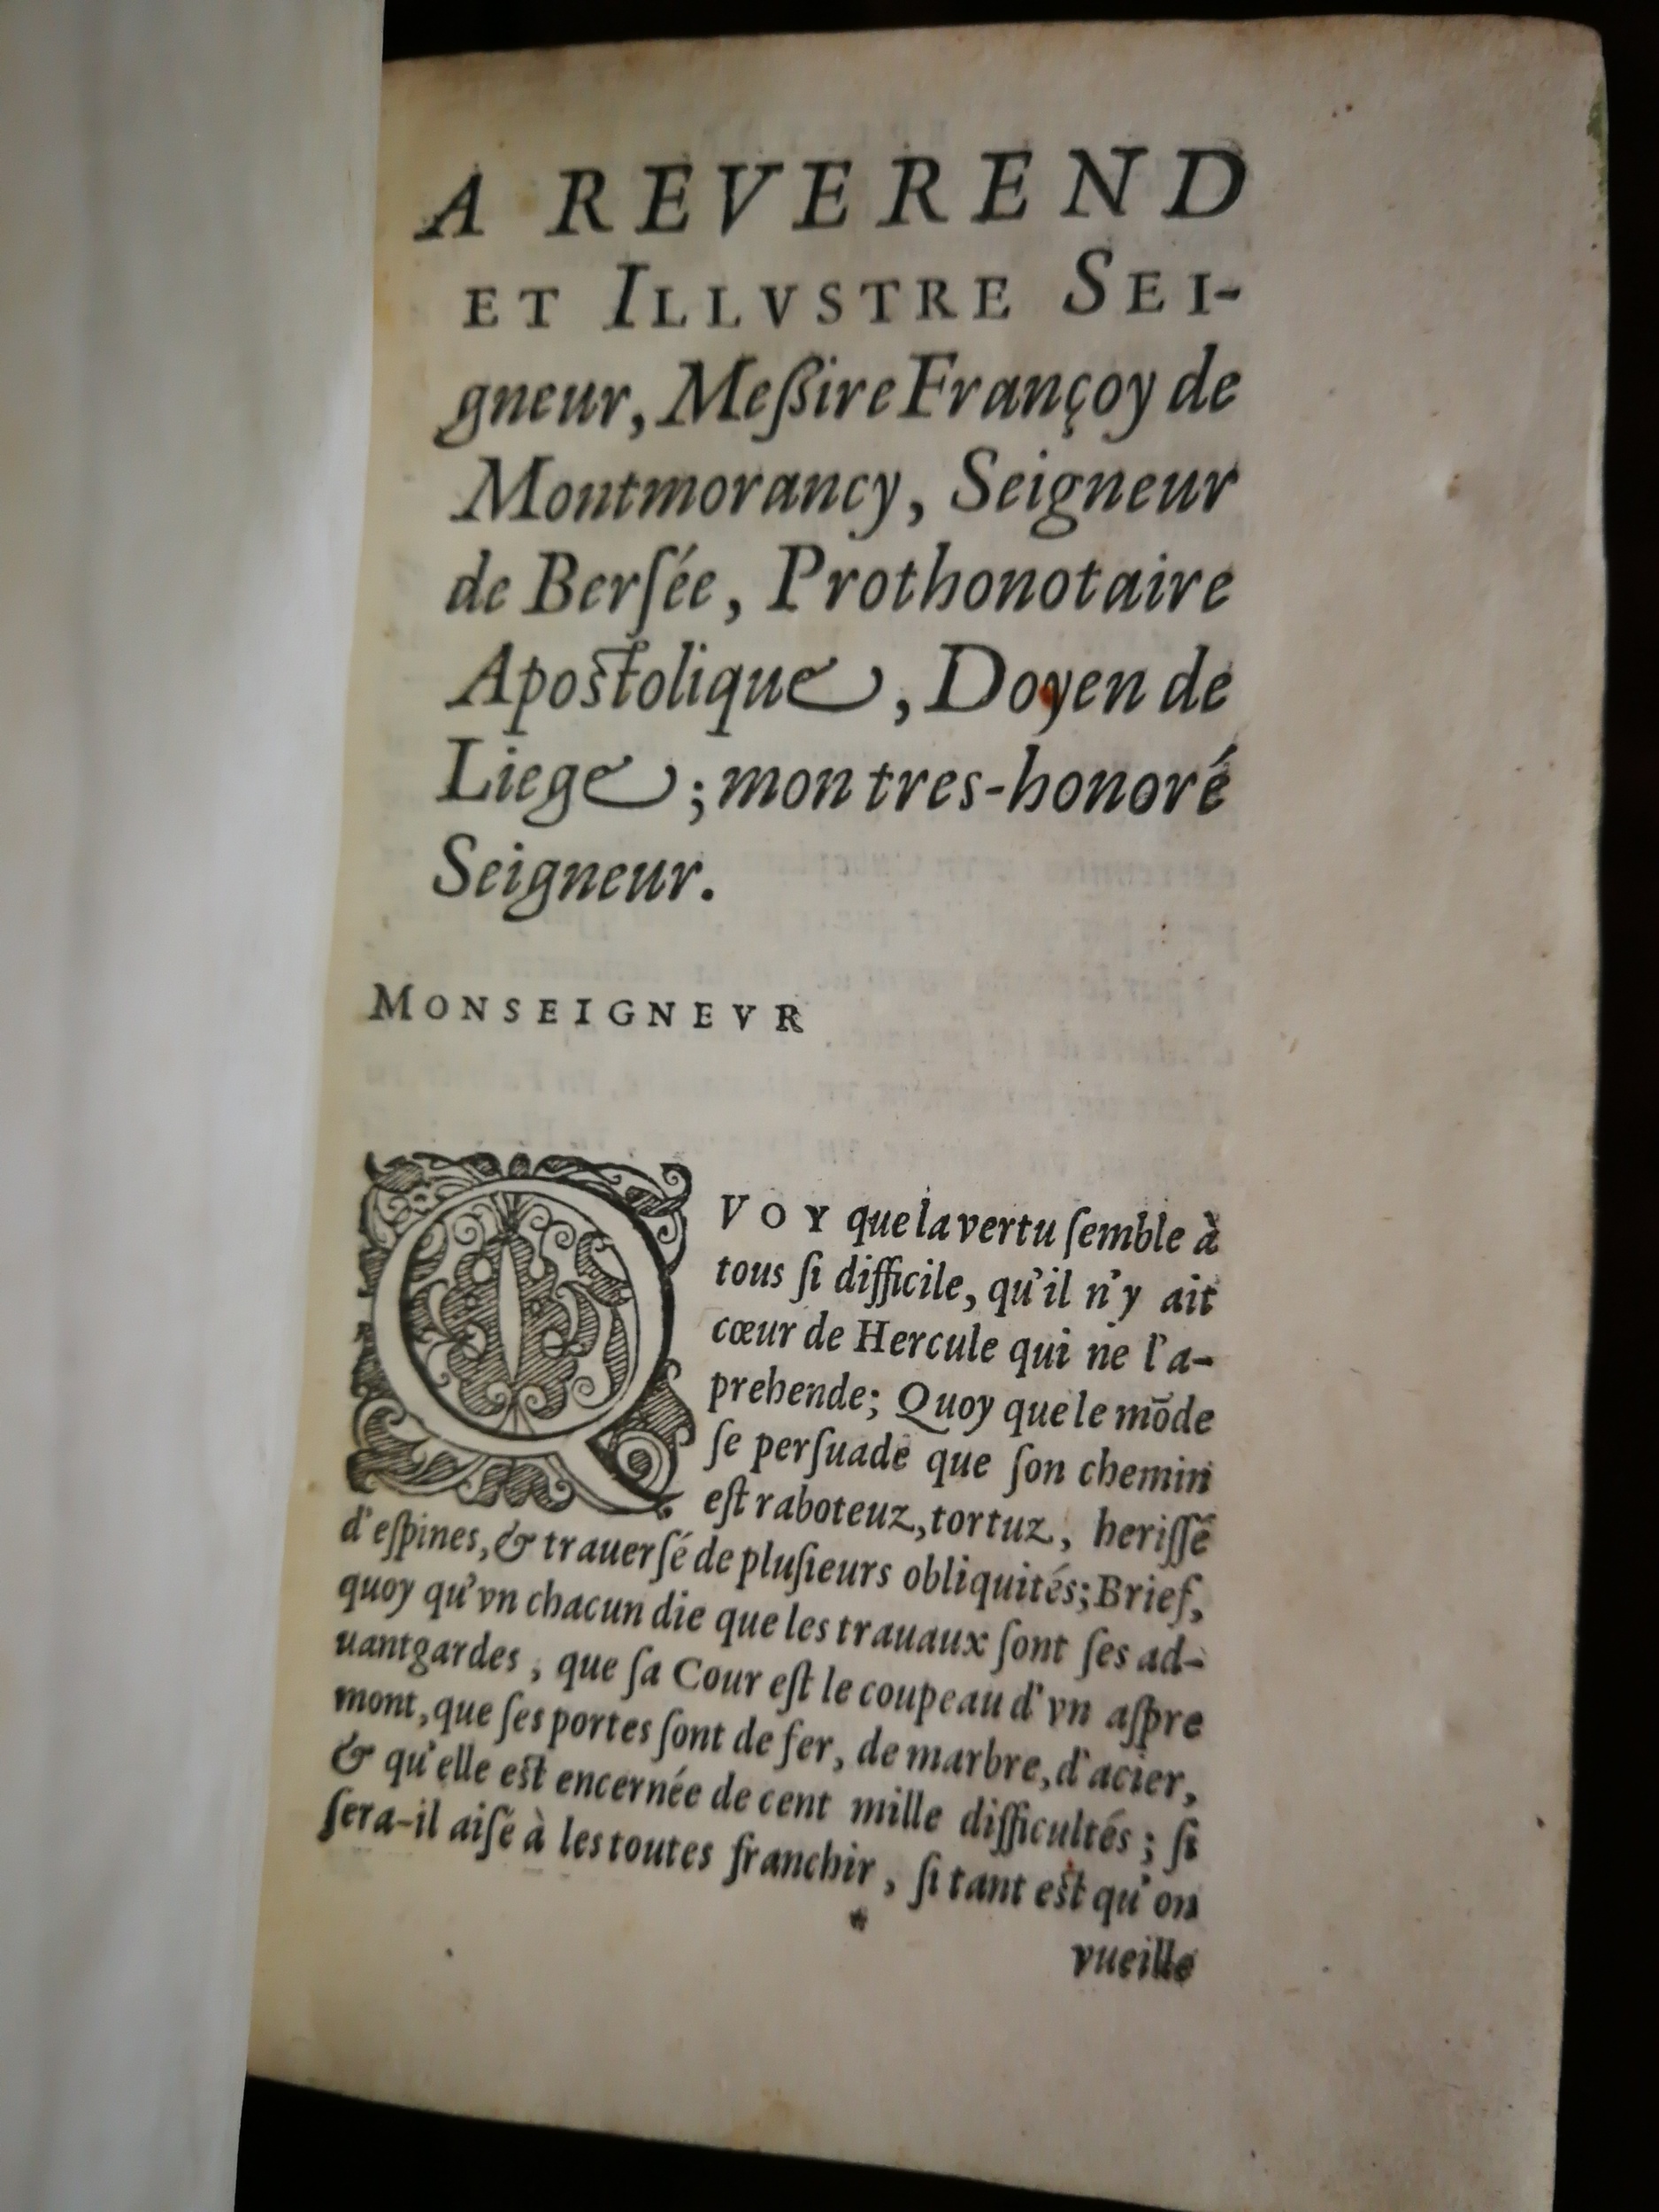 A REVEREND
ET ILLVSTRE SEI-
gneur, Meßire Françoy de
Montmorancy, Seigneur
de Berſée, Prothonotaire
Apoſtolique, Doyen de
Liege; mon tres-honoré
Seigneur.
MONSEIGNEVR
QVOY que la vertu ſemble à
tous ſi difficile, qu'il n'y ait
cœur de Hercule qui ne l'a-
prehende; Quoy que le mõde
ſe perſuade que ſon chemin
eſt raboteuz, tortuz, heriſſé
d'eſpines, & trauerſé de pluſieurs obliquités; Brief,
quoy qu'vn chacun die que les trauaux ſont ſes ad-
uantgardes, que ſa Cour eſt le coupeau d'vn aſpre
mont, que ſes portes ſont de fer, de marbre, d'acier,
& qu'elle eſt encernée de cent mille difficultés; ſi
ſera-il aiſé à les toutes franchir, ſi tant eſt qu'on
*
vueille